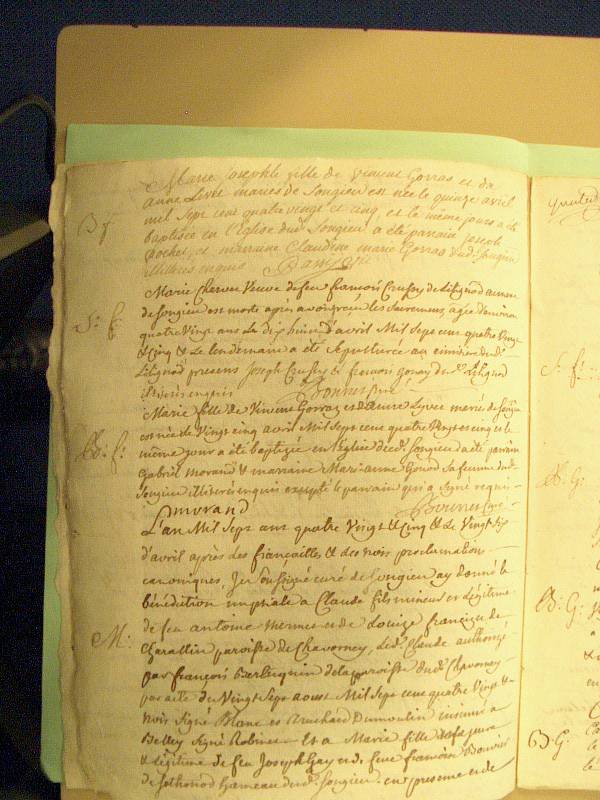 Marie Josephte fille de vincent Gorras et da
anne Livet mariés de Songieu est née le quinze avril
B f
mil Sept cent quatre vingt et cinq, et le même jour a été
baptisée en l'Eglise dud. Songieu a été parain Joseph
Pochet, et marraine Claudine marie Gorras dud. Songieu
illitérés enquis
Marie Chervet Veuve de feu francois Crussy de Lilignod
de Songieu est morte après avoir reçu les Sacremens, agée d'environ
S: f:
quatre Vingt ans Le dix huit d'avril Mil Sept cent quatre Vingt
& Cinq & Le lendemain a été Sepulturée au cimitière dud.
Lilignod presens Joseph Crussy & francois gonay du d. Lilignod
illiterés enquis Bonnet curé
Marie fille de Vincent Gorras et d'anne Lyvet mariés de Songieu
est née le Vingt cinq avril Mil Sept cent quatre Vingt et cinq et le
B: f:
même jour a été baptizée en l'Eglise dud. Songieu a été parain
Gabriel morand & marraine Marianne Genod Sa femme dud.
Songieu illiterés enquis excepté le parrain qui a Signé requis
morand Bonnet curé
L'an Mil Sept cent quatre Vingt & Cinq & Le Vingt Six
d'avril après des fiançailles & des trois proclamations
canoniques, Je Soussigné curé de Songieu ay donné la
bénédiction nuptiale a Claude fils mineur et Légitime
de feu antoine mermet et de Louize françoise de
M:
Charattin paroisse de Chavorney, led. Claude authorizé
par françois Berthuguin de la paroisse dud. Chavorney
par acte du Vingt Sept aoust Mil Sept cent quatre Vingt &
trois Signé Blanc et Dumoulin insinué a
Belley Signé Robinet Et a Marie fille
& légitime de feu Joseph Gay et de feue francoise Bouvier
de Sothonod hameau dud. Songieu. en presence de
S: f:
B: G:
B: G:
B: G: